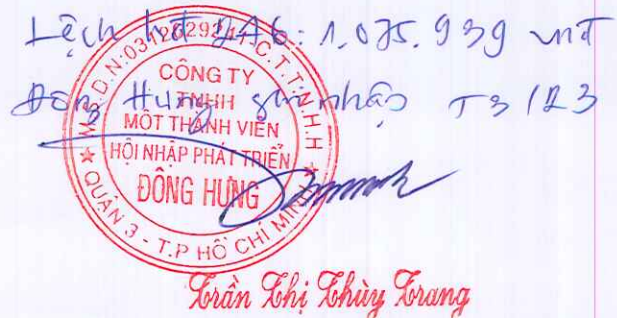 Lệch hđ DA6: 1.075.939 vnđ
Đông Hưng ghi nhập T3/23
M.S.D.N:03126292 - C.T.T.N.H.H
CÔNG TY
TNHH
MỘT THÀNH VIÊN
HỘI NHẬP PHÁT TRIỂN
ĐÔNG HƯNG
QUẬN 3 - T.P HỒ CHÍ MINH
Trần Thị Thùy Trang